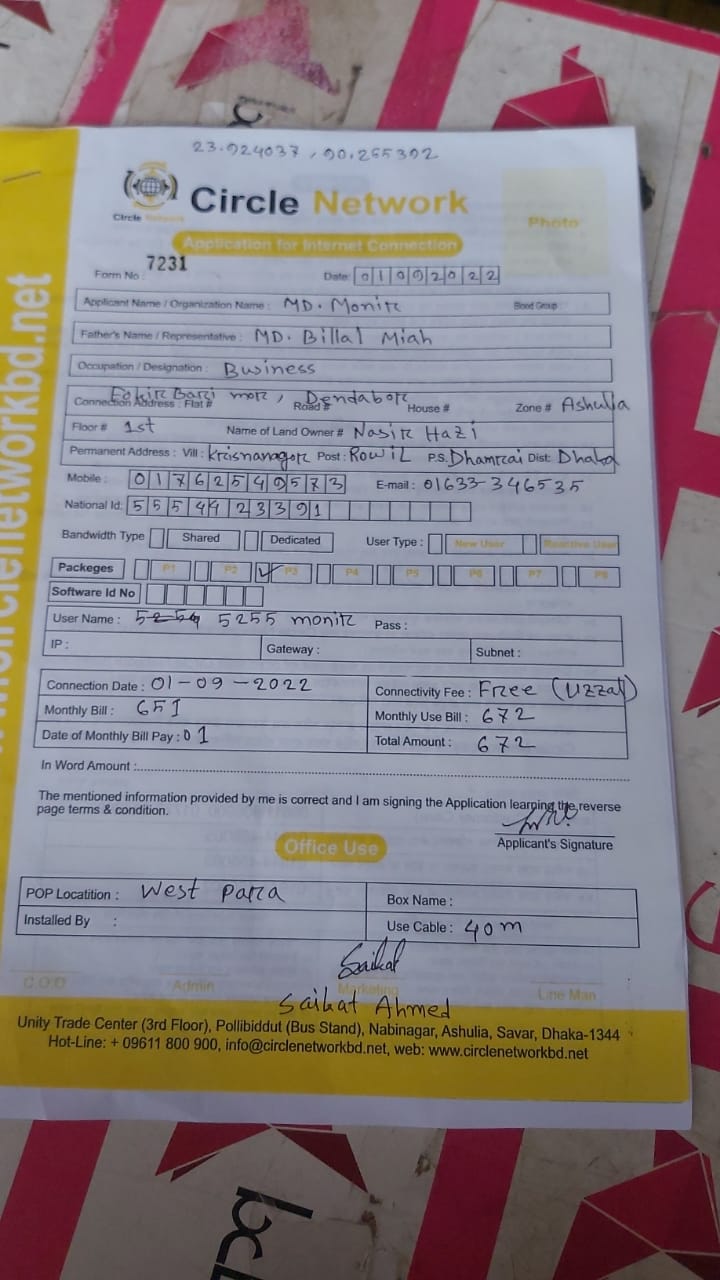 23.924037, 90.265392
Circle Network
Circle Network
Photo
Application for Internet Connection
Form No : 7231
Date: 01092022
Applicant Name / Organization Name : MD. Monir
Blood Group :
Father's Name / Representative : MD. Billal Miah
Occupation / Designation : Business
Connection Address : Flat # Fokir Bari mor, Road # Dendabor House # Zone # Ashulia
Floor # 1st Name of Land Owner # Nasir Hazi
Permanent Address : Vill : Krisnanagor Post : Rowil P.S. Dhamrai Dist: Dhaka
Mobile : 01762549573 E-mail : 01633-346535
National Id: 5554423391
Bandwidth Type Shared Dedicated User Type : New User Reactive User
Packeges P1 P2 P3 P4 P5 P6 P7 P8
Software Id No
User Name : 5254 5255 monir Pass :
IP : Gateway : Subnet :
Connection Date : 01-09-2022 Connectivity Fee : Free (Uzzal)
Monthly Bill : 651 Monthly Use Bill : 672
Date of Monthly Bill Pay : 01 Total Amount : 672
In Word Amount :
The mentioned information provided by me is correct and I am signing the Application learning the reverse
page terms & condition.
Applicant's Signature
Office Use
POP Locatition : West para Box Name :
Installed By : Use Cable : 40m
Saikat
C.O.D Admin Marketing Line Man
Saikat Ahmed
Unity Trade Center (3rd Floor), Pollibiddut (Bus Stand), Nabinagar, Ashulia, Savar, Dhaka-1344
Hot-Line: + 09611 800 900, info@circlenetworkbd.net, web: www.circlenetworkbd.net